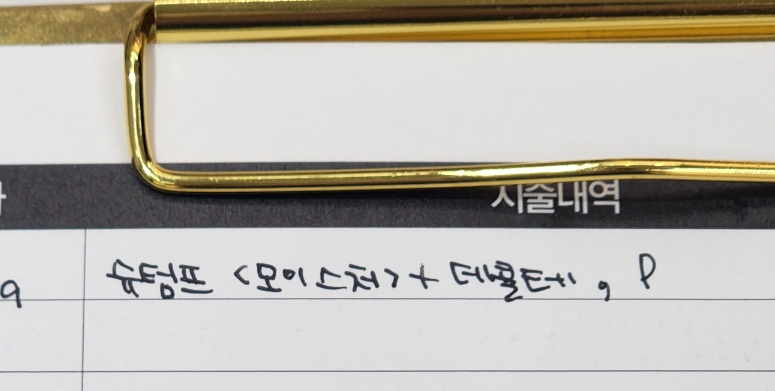 시술내역
9 슈텀프 <모이스처> + 데콜테, P